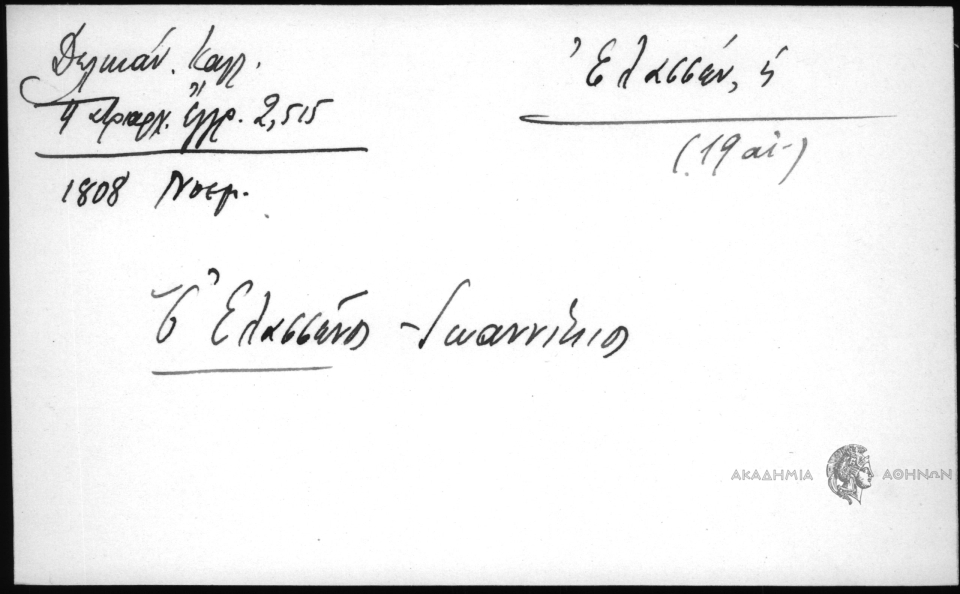 Δελικάν. Καλλ.
Πατριαρχ. ἔγγρ. 2,515
1808 Νοεμ.
Ἐλασσών, ἡ
(19 αἰ.)
Ὁ Ἐλασσῶνος Ἰωαννίκιος
ΑΚΑΔΗΜΙΑ ΑΘΗΝΩΝ